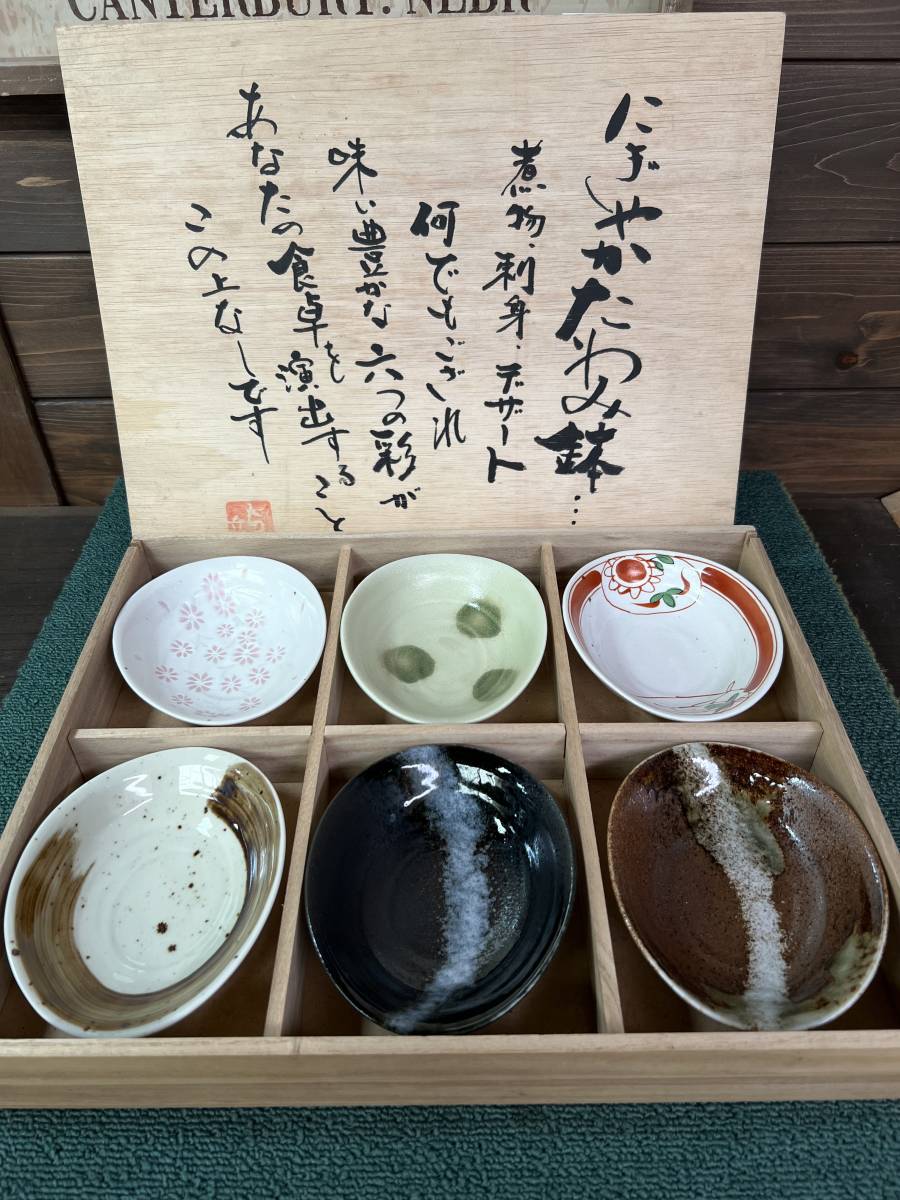 CANTERBURY. NEBR
にぎやかたわみ鉢…
煮物・刺身・デザート
何でもござれ
味い豊かな六つの彩が
あなたの食卓を演出すること
この上なしです